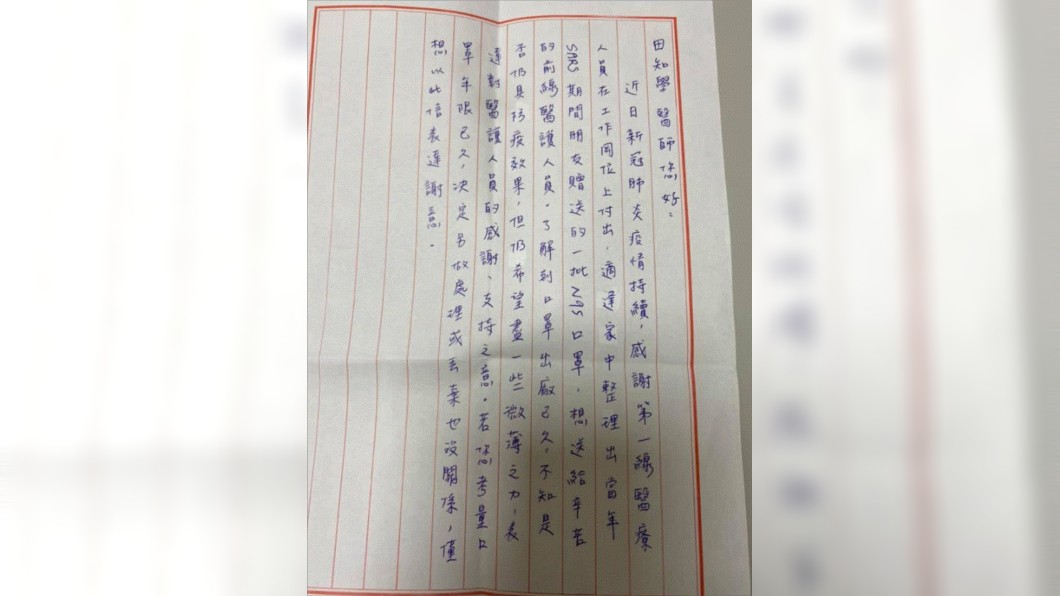 田知學醫師您好：
近日新冠肺炎疫情持續，感謝第一線醫療
人員在工作岡位上付出，適逢家中整理出當年
SARS期間朋友贈送的一批N95口罩，想送給辛苦
的前線醫護人員。了解到口罩出廠已久，不知是
否仍具防疫效果，但仍希望盡一些微薄之力，表
達對醫護人員的感謝、支持之意。若您考量口
罩年限已久，決定另做處理或丟棄也沒關係，僅
想以此信表達謝意。